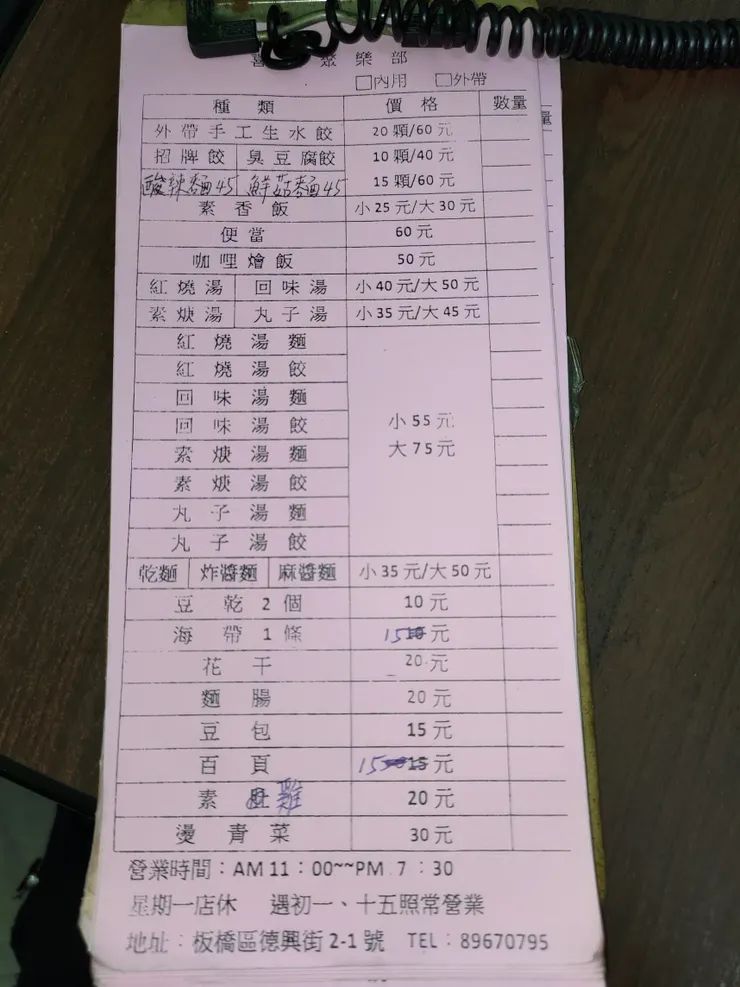 聚樂部
□內用 □外帶
種類 價格 數量
外帶手工生水餃 20顆/60元
招牌餃 臭豆腐餃 10顆/40元
酸辣麵45 鮮菇麵45 15顆/60元
素香飯 小25元/大30元
便當 60元
咖哩燴飯 50元
紅燒湯 回味湯 小40元/大50元
素焿湯 丸子湯 小35元/大45元
紅燒湯麵
紅燒湯餃
回味湯麵
回味湯餃 小55元
素焿湯麵 大75元
素焿湯餃
丸子湯麵
丸子湯餃
乾麵 炸醬麵 麻醬麵 小35元/大50元
豆乾2個 10元
海帶1條 15元
花干 20元
麵腸 20元
豆包 15元
百頁 15元
素雞 20元
燙青菜 30元
營業時間：AM 11：00~~PM 7：30
星期一店休 遇初一、十五照常營業
地址：板橋區德興街2-1號 TEL：89670795
量